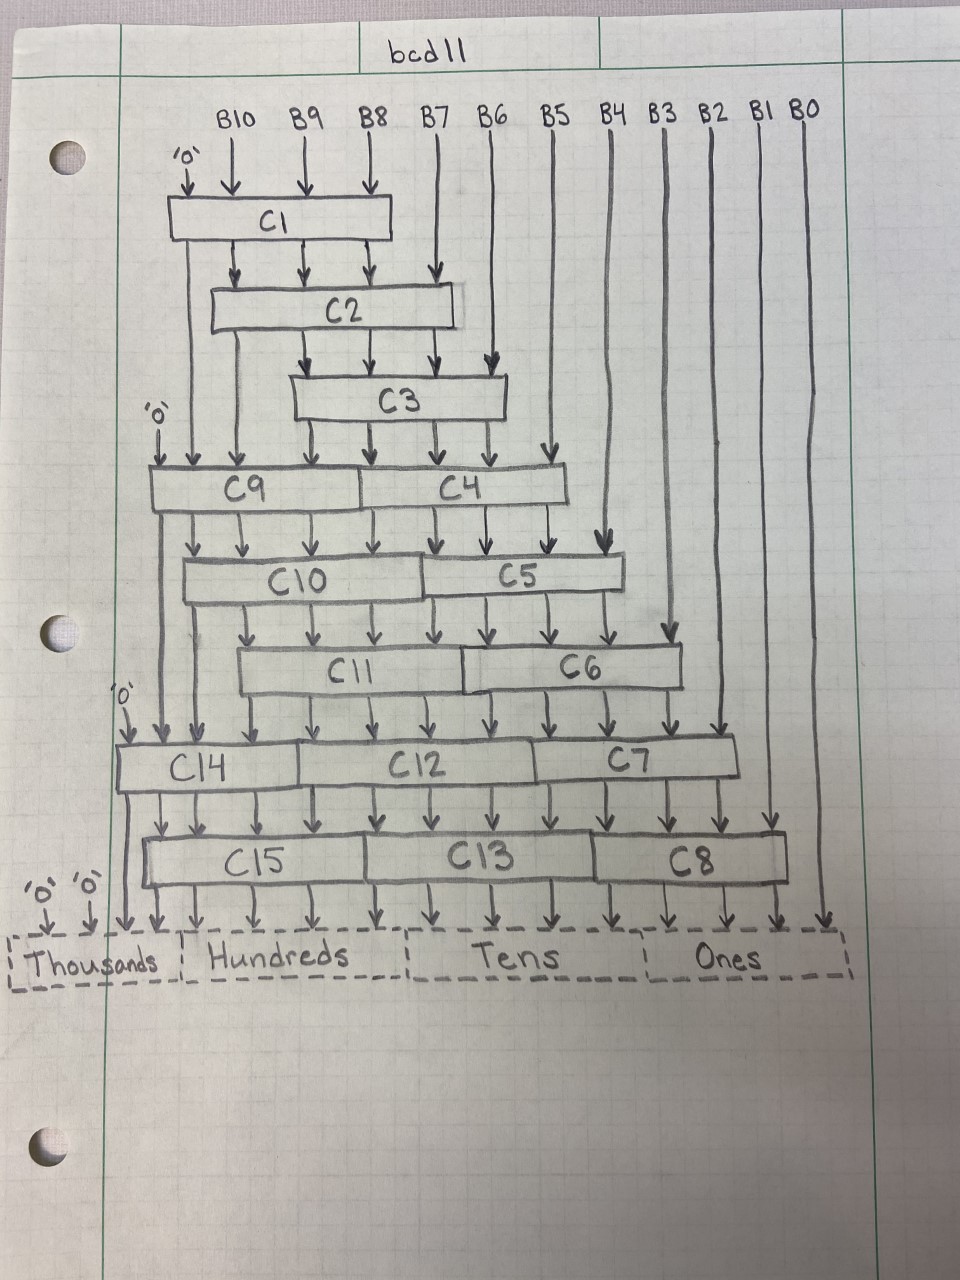 bcd11
B10 B9 B8 B7 B6 B5 B4 B3 B2 B1 B0
'0'
C1
C2
C3
'0'
C9 C4
C10 C5
C11 C6
'0'
C14 C12 C7
C15 C13 C8
'0' '0'
Thousands Hundreds Tens Ones